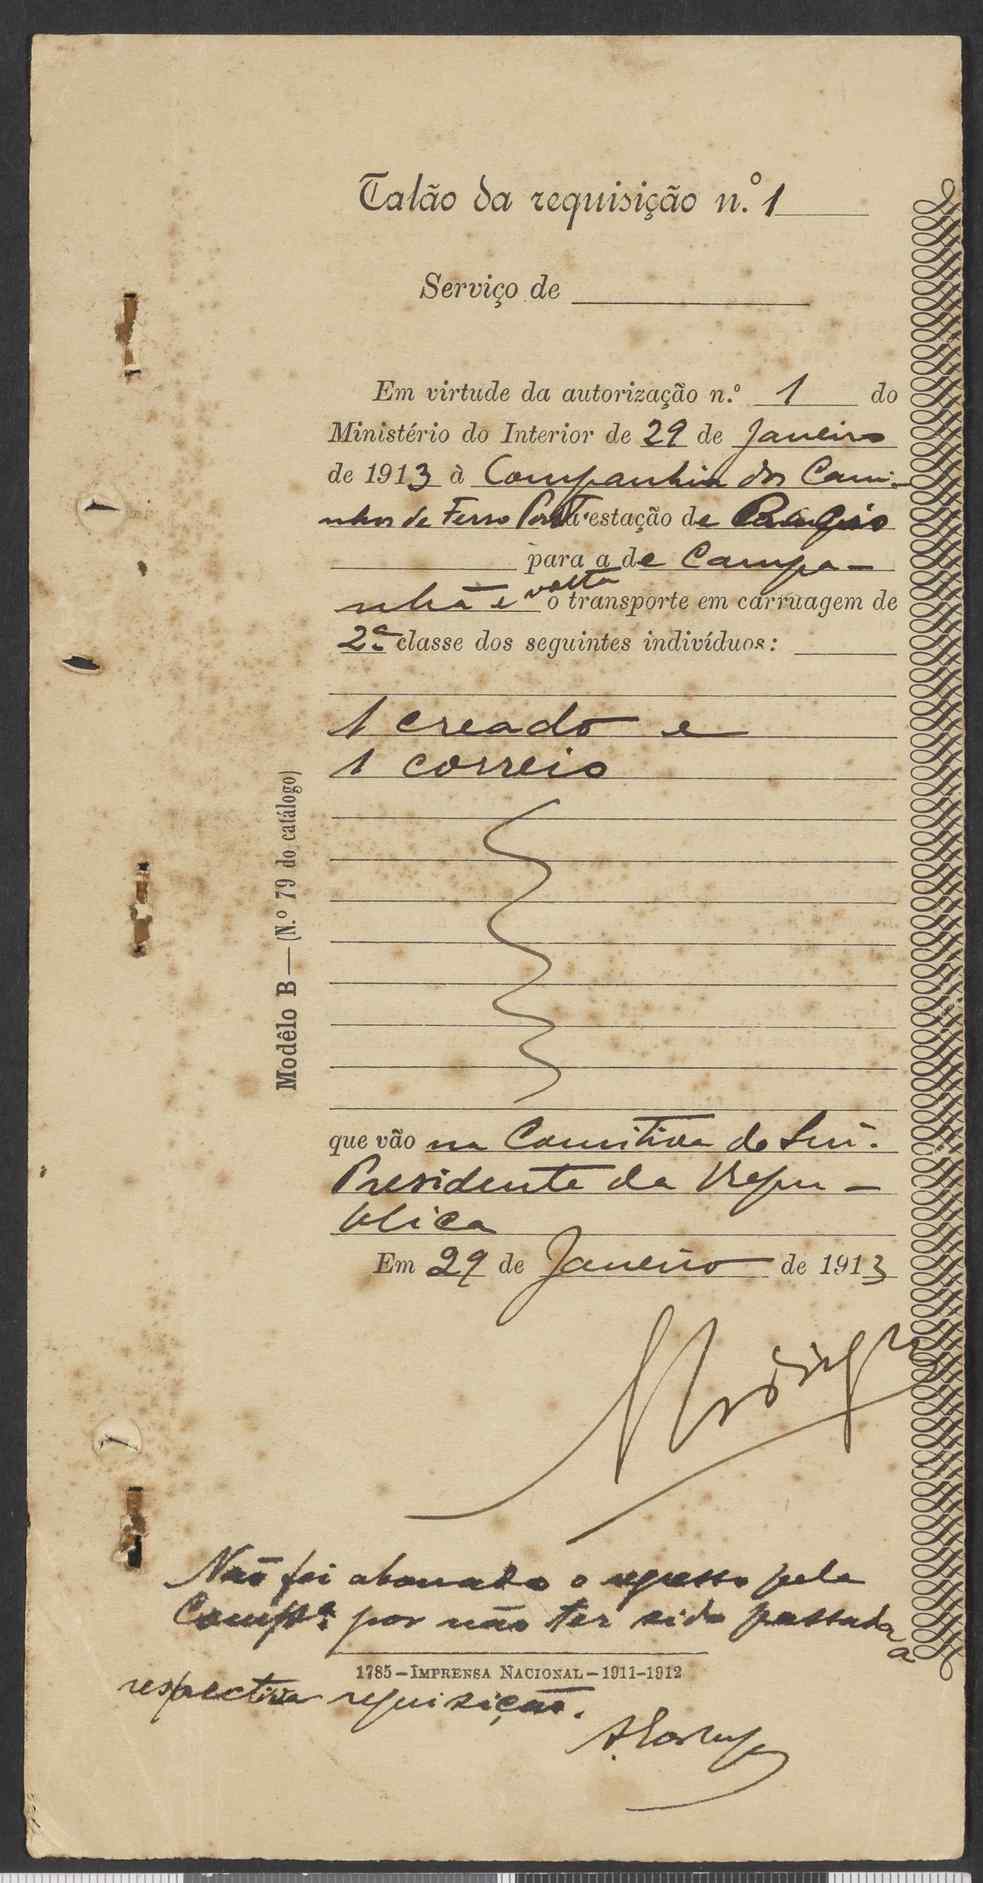 Talão da requisição n.º 1
Serviço de
Em virtude da autorização n.º 1 do
Ministério do Interior de 29 de Janeiro
de 1913 à Companhia dos Cami-
nhos de Ferro Port. da estação de
para a de Campa-
nhã e volta o transporte em carruagem de
2.ª classe dos seguintes indivíduos:
1 creado e
1 correio
que vão na Comitiva do Snr.
Presidente da Repu-
blica
Em 29 de Janeiro de 1913
Não foi abonado o regresso pela
Comp.ª por não ter sido passada a
1785—IMPRENSA NACIONAL—1911-1912
respectiva requisição.
Modêlo B—(N.º 79 do catálogo)